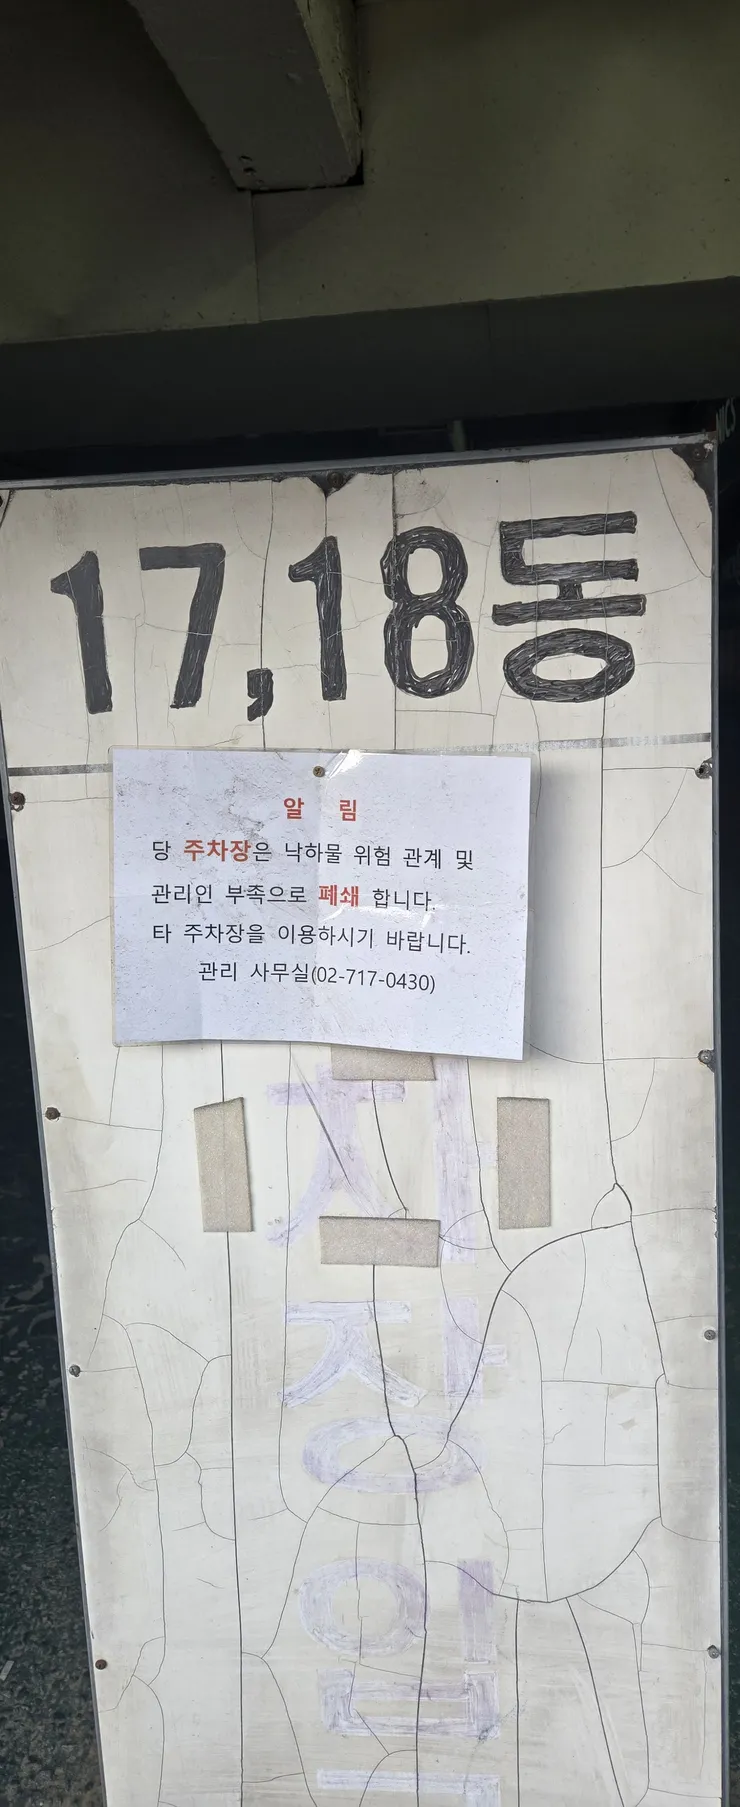 17,18동
알 림
당 주차장은 낙하물 위험 관계 및
관리인 부족으로 폐쇄 합니다.
타 주차장을 이용하시기 바랍니다.
관리 사무실(02-717-0430)